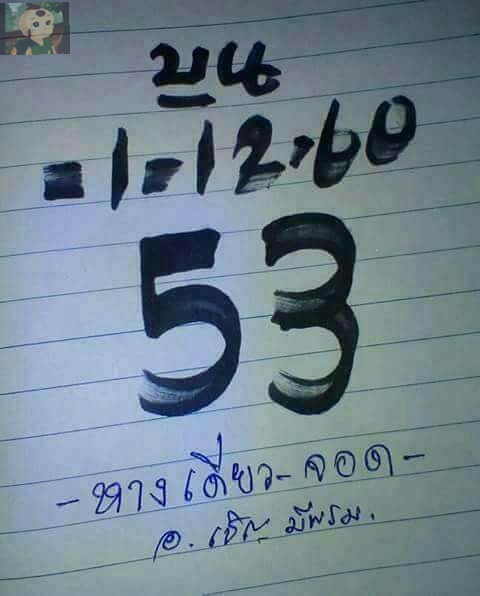 บน
-1-12-60
53
-ทางเดียว-จอด-
อ. เชิญ มีพรม.